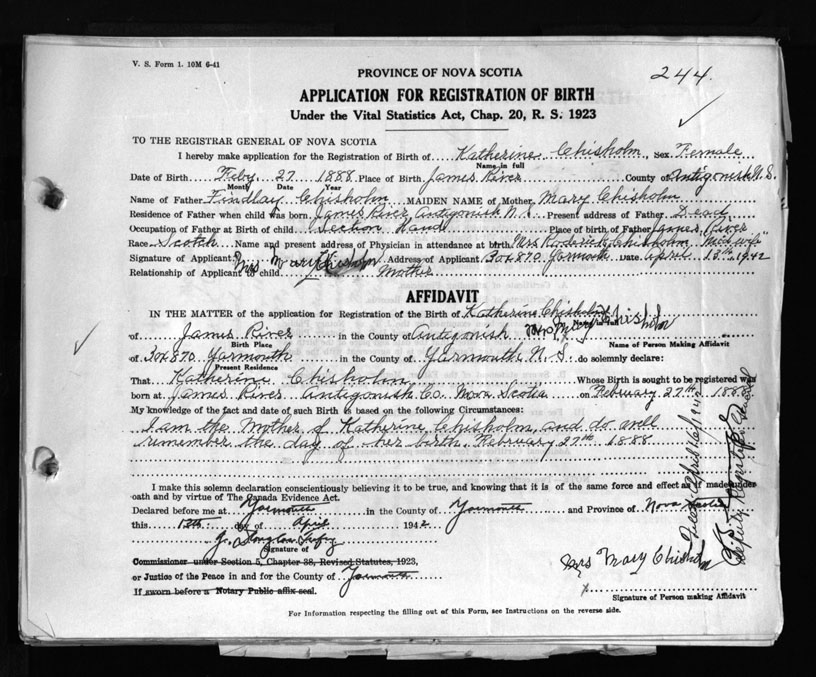 V. S. Form 1. 10M 6-41
244.
PROVINCE OF NOVA SCOTIA
APPLICATION FOR REGISTRATION OF BIRTH
Under the Vital Statistics Act, Chap. 20, R. S. 1923
TO THE REGISTRAR GENERAL OF NOVA SCOTIA
I hereby make application for the Registration of Birth of Katherine Chisholm, Sex Female
Name in full
Date of Birth Feby 27 1888 Place of Birth James River County of Antigonish N.S.
Month Date Year
Name of Father Findlay Chisholm MAIDEN NAME of Mother Mary Chisholm
Residence of Father when child was born James River, Antigonish N.S. Present address of Father Dead
Occupation of Father at Birth of child Section Hand Place of birth of Father James River
Race Scotch Name and present address of Physician in attendance at birth Mrs Roderick Chisholm "Mid wife"
Signature of Applicant Mrs Mary Chisholm Address of Applicant Box 870 Yarmouth Date April 15th, 1942
Relationship of Applicant to child Mother
AFFIDAVIT
IN THE MATTER of the application for Registration of the Birth of Katherine Chisholm
Name in full
of James River in the County of Antigonish Mrs Mary Chisholm
Birth Place Name of Person Making Affidavit
of Box 870 Yarmouth in the County of Yarmouth N.S. do solemnly declare:
Present Residence
That Katherine Chisholm Whose Birth is sought to be registered was
born at James River Antigonish Co. Nova Scotia on February 27th 1888
My knowledge of the fact and date of such Birth is based on the following Circumstances:
I am the Mother of Katherine Chisholm, and do well
remember the day of her birth, February 27th 1888
I make this solemn declaration conscientiously believing it to be true, and knowing that it is of the same force and effect as if made under
oath and by virtue of The Canada Evidence Act.
Declared before me at Yarmouth in the County of Yarmouth and Province of Nova Scotia
this 15th day of April 1942
Signature of
Commissioner under Section 5, Chapter 38, Revised Statutes, 1923,
or Justice of the Peace in and for the County of Yarmouth
If sworn before a Notary Public affix seal.
Mrs Mary Chisholm
Signature of Person making Affidavit
For Information respecting the filling out of this Form, see Instructions on the reverse side.
April 16/1942
Deputy Registrar General